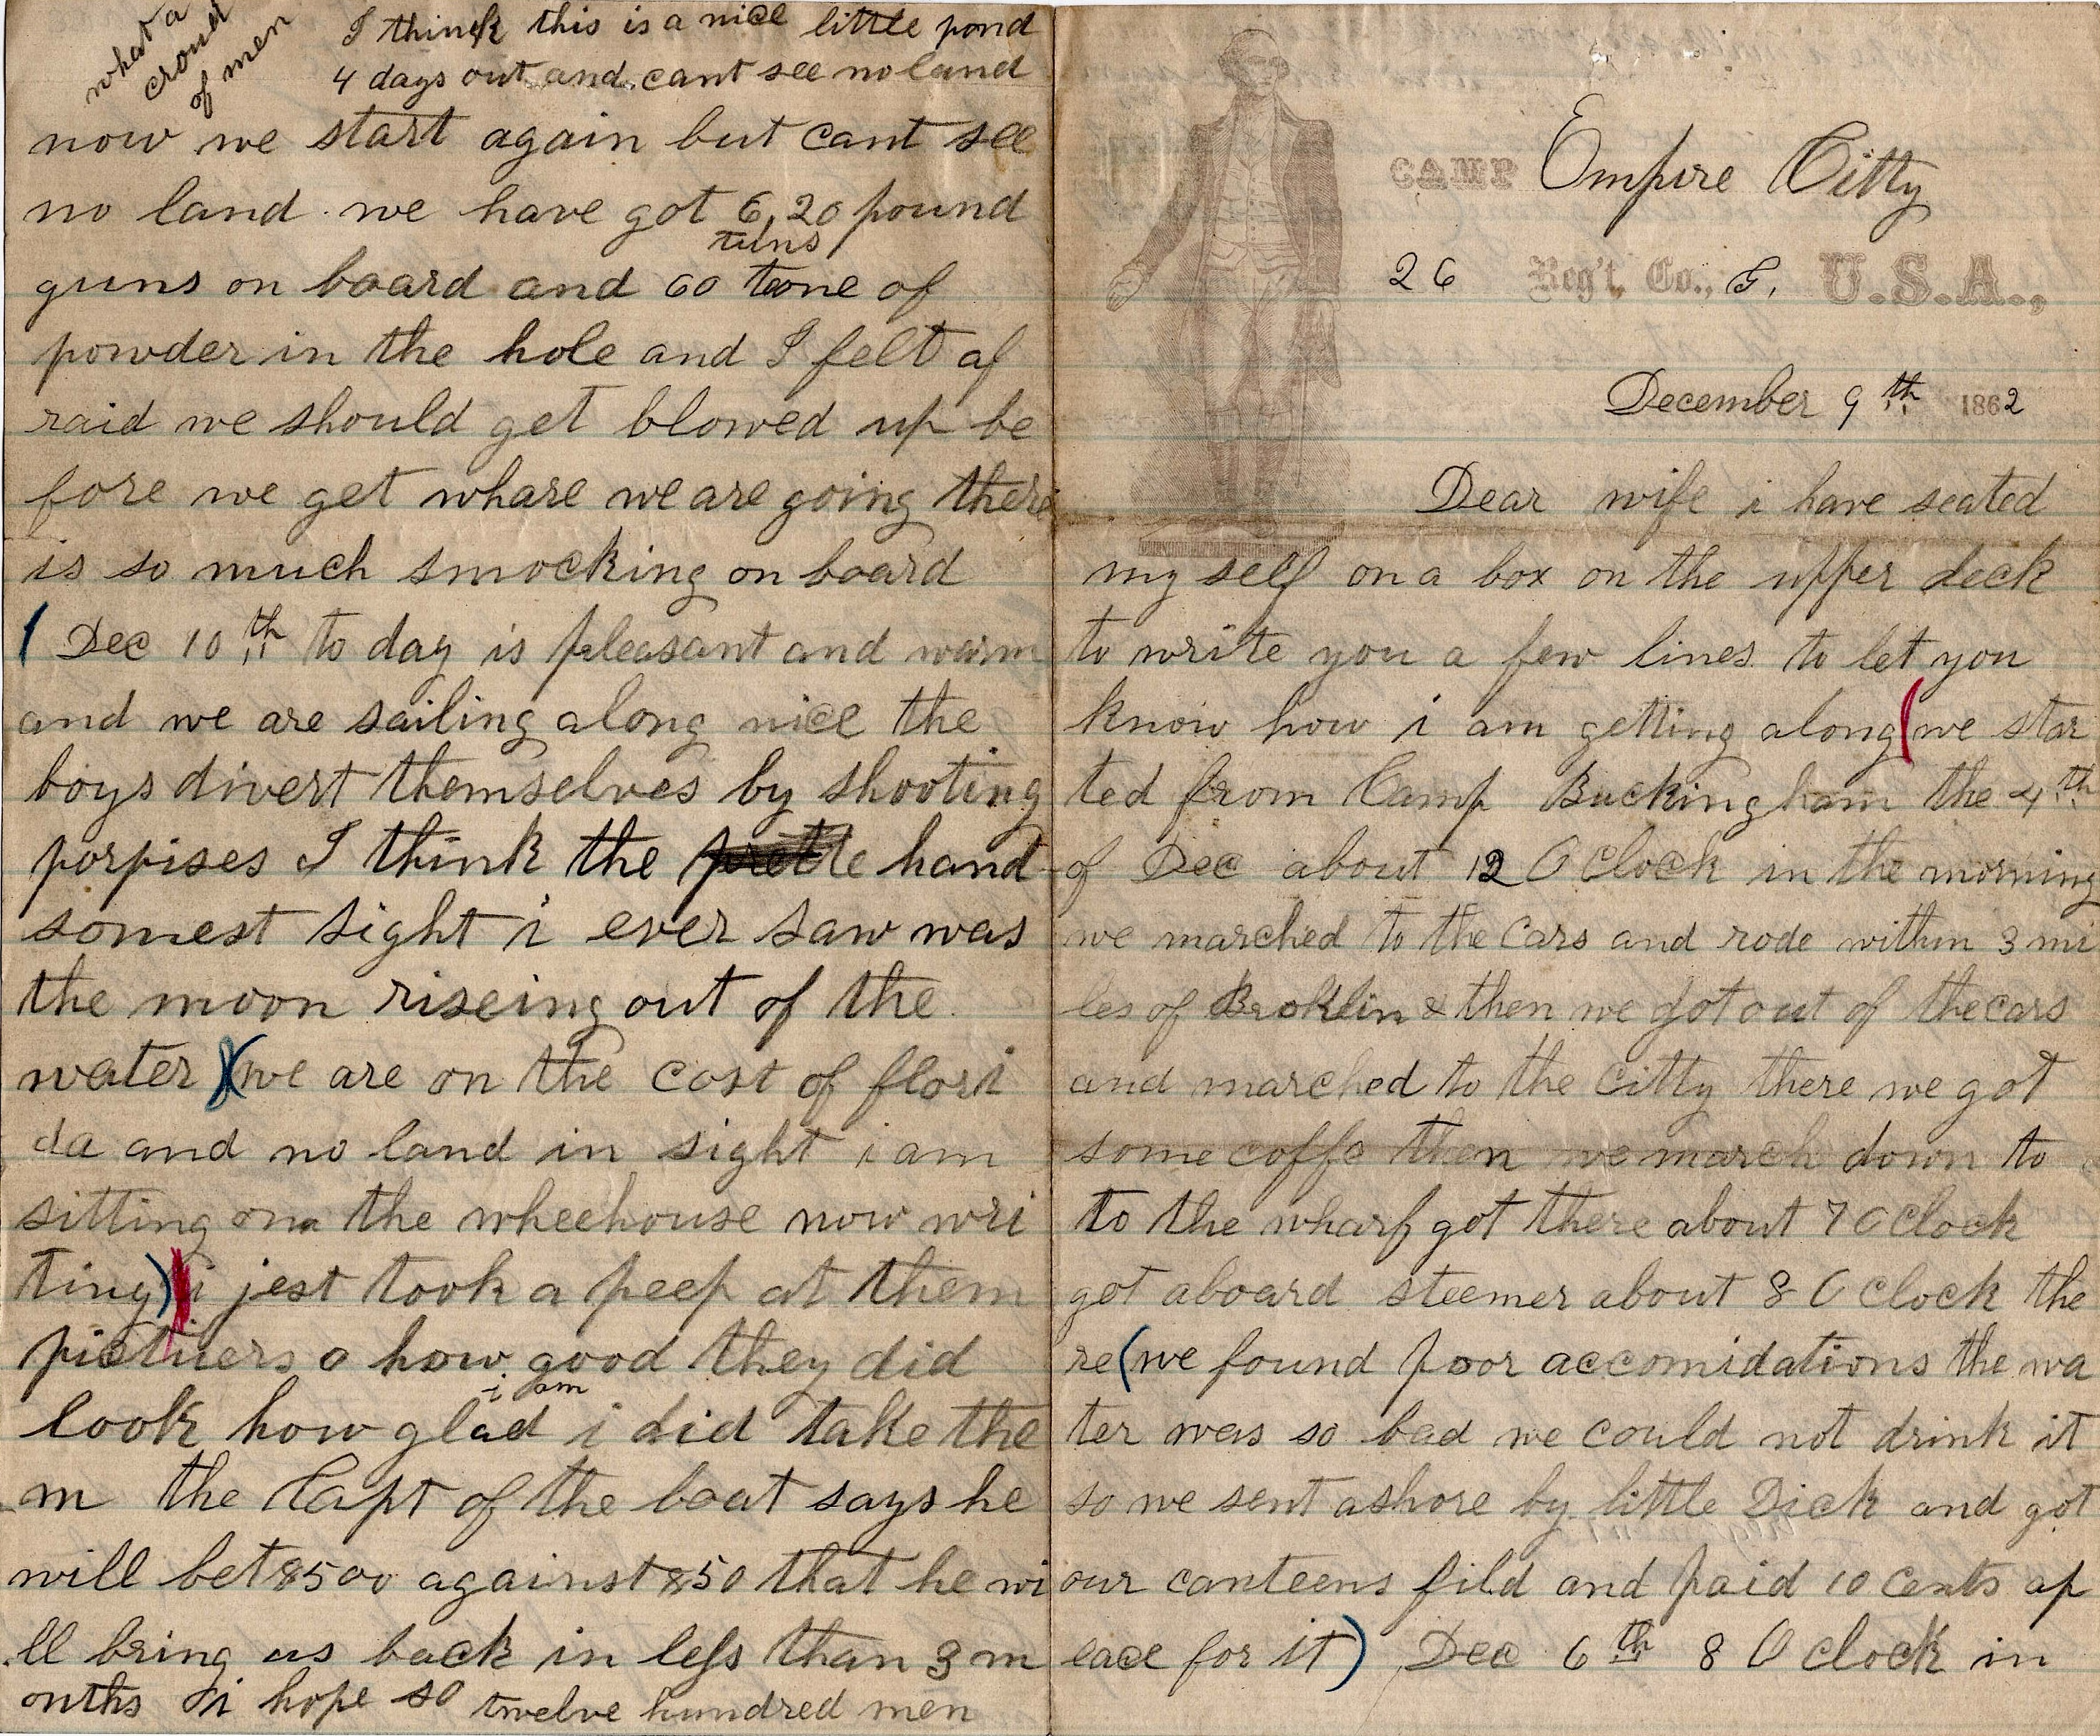 CAMP Empire Citty
26 Reg't. Co., G. U.S.A.,
December 9th 1862
Dear wife i have seated
my self on a box on the upper deck
to write you a few lines to let you
know how i am getting along (we star
ted from Camp Buckingham the 4th
of Dec about 12 O Clock in the morning
we marched to the Cars and rode within 3 mi
les of Broklin & then we got out of the cars
and marched to the citty there we got
some coffe then we march down to
to the wharf got there about 7 O Clock
got aboard steemer about 8 O clock the
re (we found poor accomidations the wa
ter was so bad we could not drink it
so we sent ashore by little Dick and got
our canteens fild and paid 10 cents ap
eace for it) Dec 6th 8 O clock in
what a
croud
of men
I think this is a nice little pond
4 days out and cant see no land
now we start again but cant see
no land we have got 6, 20 pound
tuns
guns on board and 60 tone of
powder in the hole and I felt af
raid we should get blowed up be
fore we get whare we are going there
is so much smocking on board
( Dec 10th to day is pleasant and warm
and we are sailing along nice the
boys divert themselves by shooting
porpises I think the hand
somest sight i ever saw was
the moon riseing out of the
water )(we are on the cost of flori
da and no land in sight i am
sitting on the wheehouse now wri
ting) i jest took a peep at them
pictuers o how good they did
i am
look how glad i did take the
m the Capt of the boat says he
will bet $500 against $50 that he wi
ll bring us back in less than 3 m
onths i hope so twelve hundred men